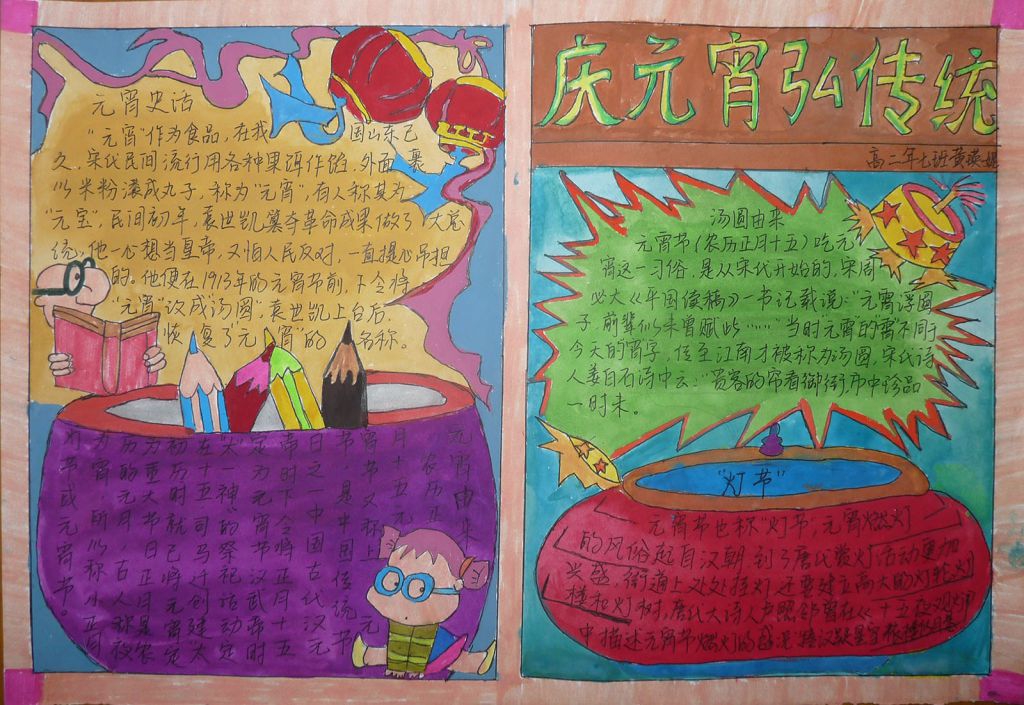 元宵史话
"元宵"作为食品，在我国山东已
久。宋代民间流行用各种果饵作馅，外面裹
以米粉滚成丸子，称为"元宵"，有人称其为
"元宝"，民间初年，袁世凯篡夺革命成果做了大总
统，他一心想当皇帝，又怕人民反对，一直提心吊担
的。他便在1913年的元宵节前，下令将
"元宵"改成"汤圆"，袁世凯上台后，
恢复了"元宵"的名称。
元宵由来
农历正
月十五元
宵节又称上元
节，是中国传统节
日之一，中国古代汉元
帝时下令将正月十五
定为元宵节汉武帝时
"太一神"的祭祀活动定
在十五司马迁创建太
初历时就已将元宵定
为重大节日正月是农
历的元月，古人称夜
为宵，所以称小正月
灯节或元宵节。
庆元宵弘传统
高二年七班黄
汤圆由来
元宵节（农历正月十五）吃元
宵这一习俗，是从宋代开始的，宋周
必大《平园续稿》一书记载说："元宵浮圆
子，前辈似未曾赋此……"当时"元宵"的宵不同于
今天的宵字，传至江南才被称为汤圆，宋代诗
人姜白石诗中云："贵客的帘看御街，市中珍品
一时来。
"灯节"
元宵节也称"灯节"，元宵燃灯
的风俗起自汉朝，到了唐代赏灯活动更加
兴盛，街道上处处挂灯，还要建立高大的灯轮、灯
楼和灯树，唐代大诗人卢照邻曾在《十五夜观灯》
中描述元宵节燃灯的盛况